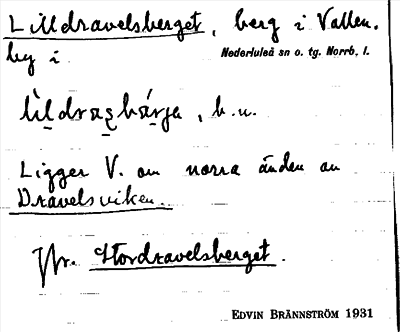 Lilldravelsberget, berg i Vallen.
by i Nederluleå sn o. tg. Norrb. l.
b.n.
Ligger V. om norra änden av
Dravelsviken.
Jfr. Stordravelsberget.
EDVIN BRÄNNSTRÖM 1931